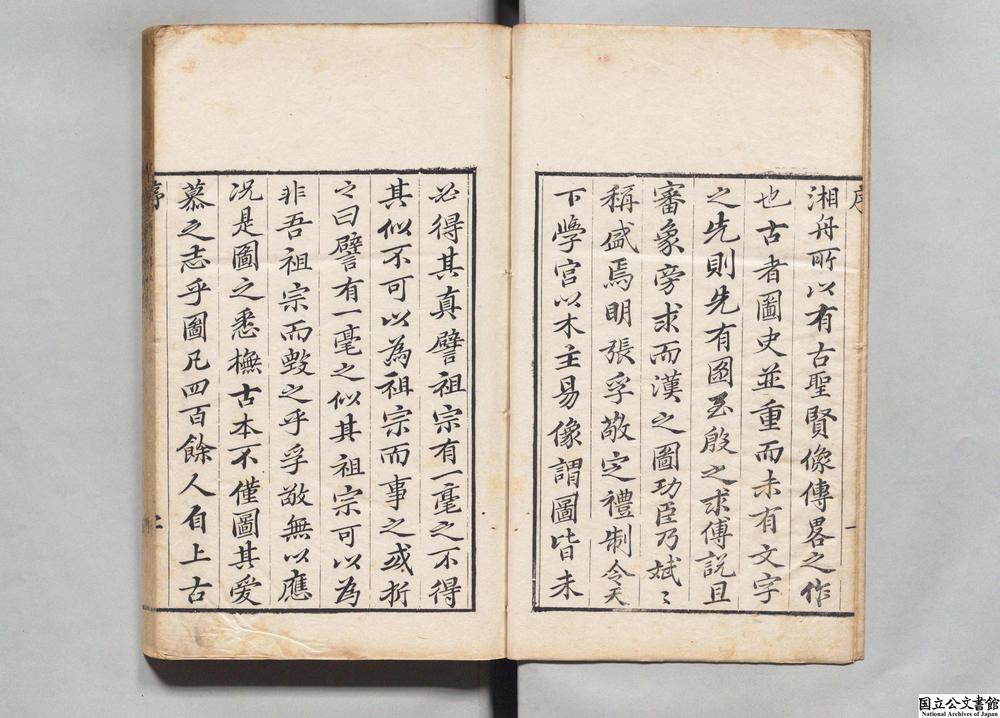 序
湘舟所以有古聖賢像傳畧之作
也古者圖史並重而未有文字
之先則先有圖至殷之求傅説且
審象旁求而漢之圖功臣乃斌〻
稱盛焉明張孚敬定禮制令天
下學宫以木主易像謂圖皆未
一
必得其真譬祖宗有一毫之不得
其似不可以為祖宗而事之或折
之曰譬有一毫之似其祖宗可以為
非吾祖宗而毀之乎孚敬無以應
况是圖之悉橅古本不僅圖其愛
慕之志乎圖凡四百餘人自上古
序
二
国立公文書館
National Archives of Japan